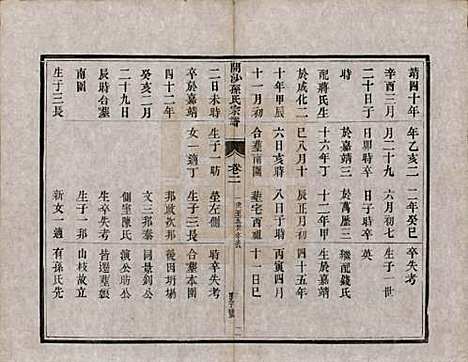 靖四十年 年乙亥二 二年癸巳 卒失考
辛酉三月 月二十九 六月初七 生子一世
二十日子 日子時卒 日子時卒 英
時 於嘉靖三 於萬歷三 繼配錢氏
配蔣氏生 十六年丁 十二年甲 生於嘉靖
於成化二 巳八月十 辰正月初 四十五年
十年甲辰 六日亥時 八日子時 丙寅四月
十一月初 合塟南圍 塟宅西祖 十一日巳
開沙孫氏宗譜 卷二
二日未時 生子一昉 塋左側 時卒失考
卒於嘉靖 女一適丁 合塟本圍
四十二年 邦啟次邦 後因坍場
癸亥二月 文一邦泰 同景釗公
二十九日 側室陳氏 演公昉公
辰時合塟 生卒失考 皆遷墓
南圍 生子一邦 山枝故立
生子三長 新女一適 有孫氏先